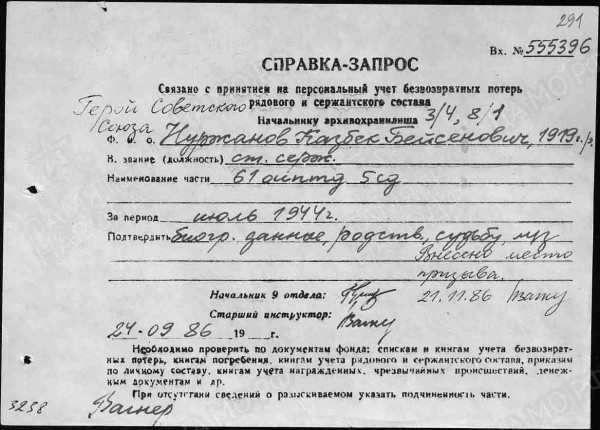 291
Вх. № 555396
СПРАВКА-ЗАПРОС
Связано с принятием на персональный учет безвозвратных потерь
рядового и сержантского состава
Герой Советского
Союза
Начальнику архивохранилища 3/4, 8/1
Ф. и. о. Нуржанов Казбек Бейсенович, 1919г./р.
В. звание (должность) ст. серж.
Наименование части 61 оиптд 5сд
За период июль 1944г.
Подтвердить биогр. данные, родств., судьбу,
Внесено место
призыва.
Начальник 9 отдела: 21.11.86
Старший инструктор:
24-09 86 19 г.
Необходимо проверить по документам фонда: спискам и книгам учета безвозврат-
ных потерь, книгам погребения, книгам учета рядового и сержантского состава, приказам
по личному составу, книгам учета награжденных, чрезвычайных происшествий, денеж-
ным документам и др.
При отсутствии сведений о разыскиваемом указать подчиненность части.
3238 Вагнер